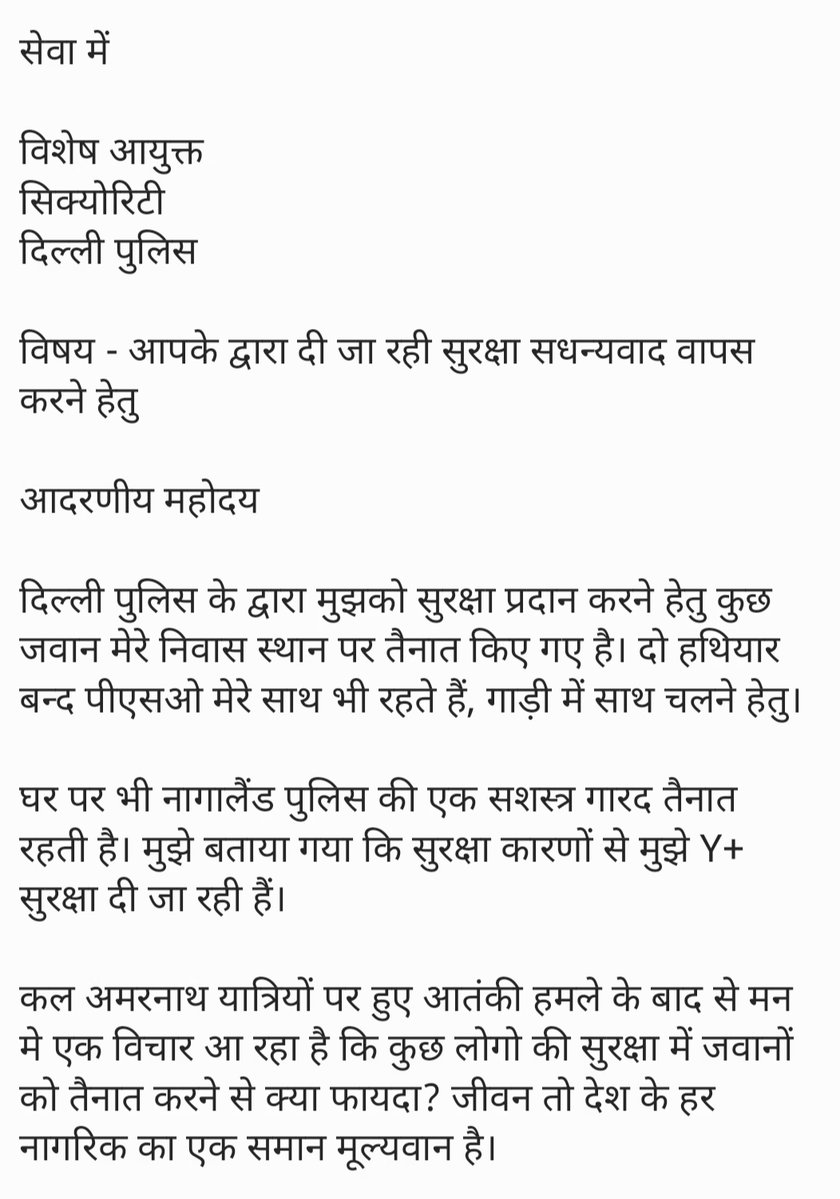 सेवा में
विशेष आयुक्त
सिक्योरिटी
दिल्ली पुलिस
विषय - आपके द्वारा दी जा रही सुरक्षा सधन्यवाद वापस
करने हेतु
आदरणीय महोदय
दिल्ली पुलिस के द्वारा मुझको सुरक्षा प्रदान करने हेतु कुछ
जवान मेरे निवास स्थान पर तैनात किए गए है। दो हथियार
बन्द पीएसओ मेरे साथ भी रहते हैं, गाड़ी में साथ चलने हेतु।
घर पर भी नागालैंड पुलिस की एक सशस्त्र गारद तैनात
रहती है। मुझे बताया गया कि सुरक्षा कारणों से मुझे Y+
सुरक्षा दी जा रही हैं।
कल अमरनाथ यात्रियों पर हुए आतंकी हमले के बाद से मन
मे एक विचार आ रहा है कि कुछ लोगो की सुरक्षा में जवानों
को तैनात करने से क्या फायदा? जीवन तो देश के हर
नागरिक का एक समान मूल्यवान है।